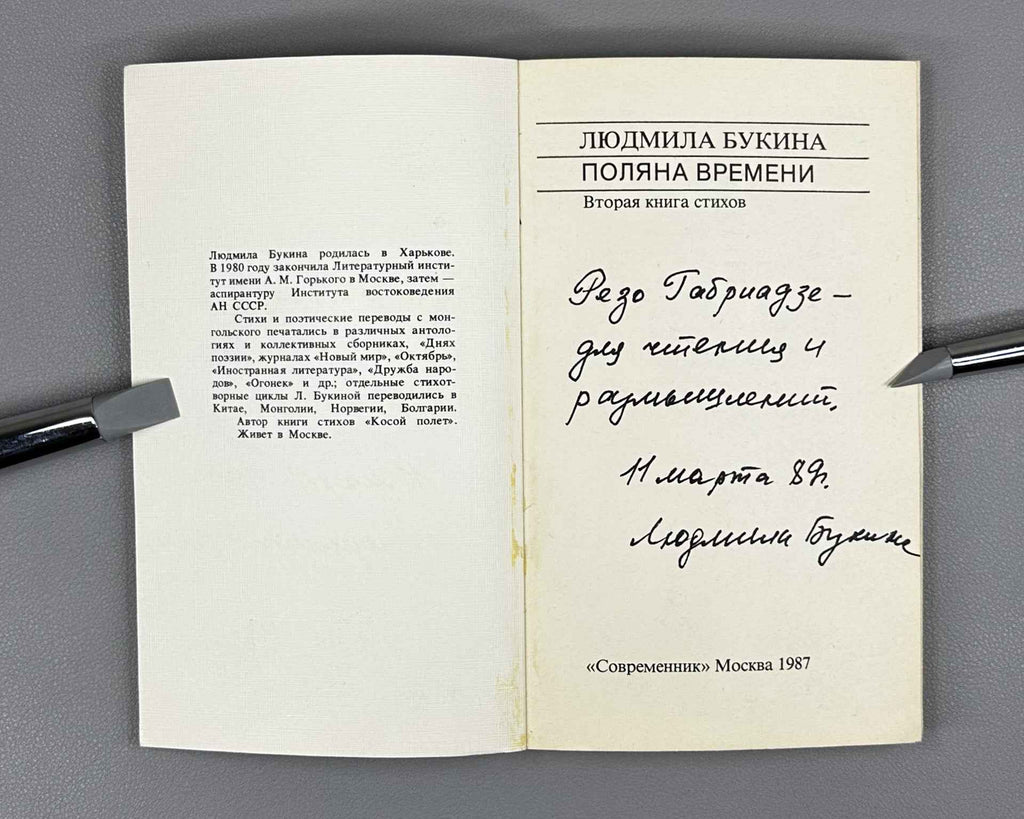 Людмила Букина родилась в Харькове.
В 1980 году закончила Литературный инсти-
тут имени А. М. Горького в Москве, затем —
аспирантуру Института востоковедения
АН СССР.
Стихи и поэтические переводы с мон-
гольского печатались в различных антоло-
гиях и коллективных сборниках, «Днях
поэзии», журналах «Новый мир», «Октябрь»,
«Иностранная литература», «Дружба наро-
дов», «Огонек» и др.; отдельные стихот-
ворные циклы Л. Букиной переводились в
Китае, Монголии, Норвегии, Болгарии.
Автор книги стихов «Косой полет».
Живет в Москве.
ЛЮДМИЛА БУКИНА
ПОЛЯНА ВРЕМЕНИ
Вторая книга стихов
Резо Габриадзе —
для чтения и
размышлений.
11 марта 89г.
Людмила Букина
«Современник» Москва 1987